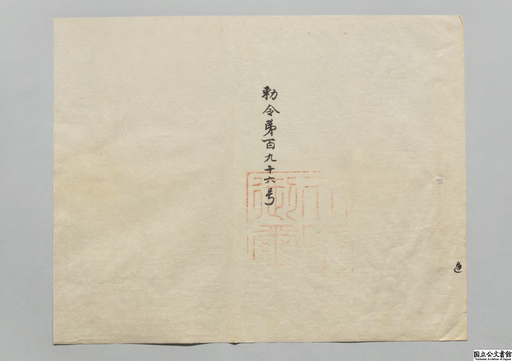 勅令第百九十六号
国立公文書館
National Archives of Japan